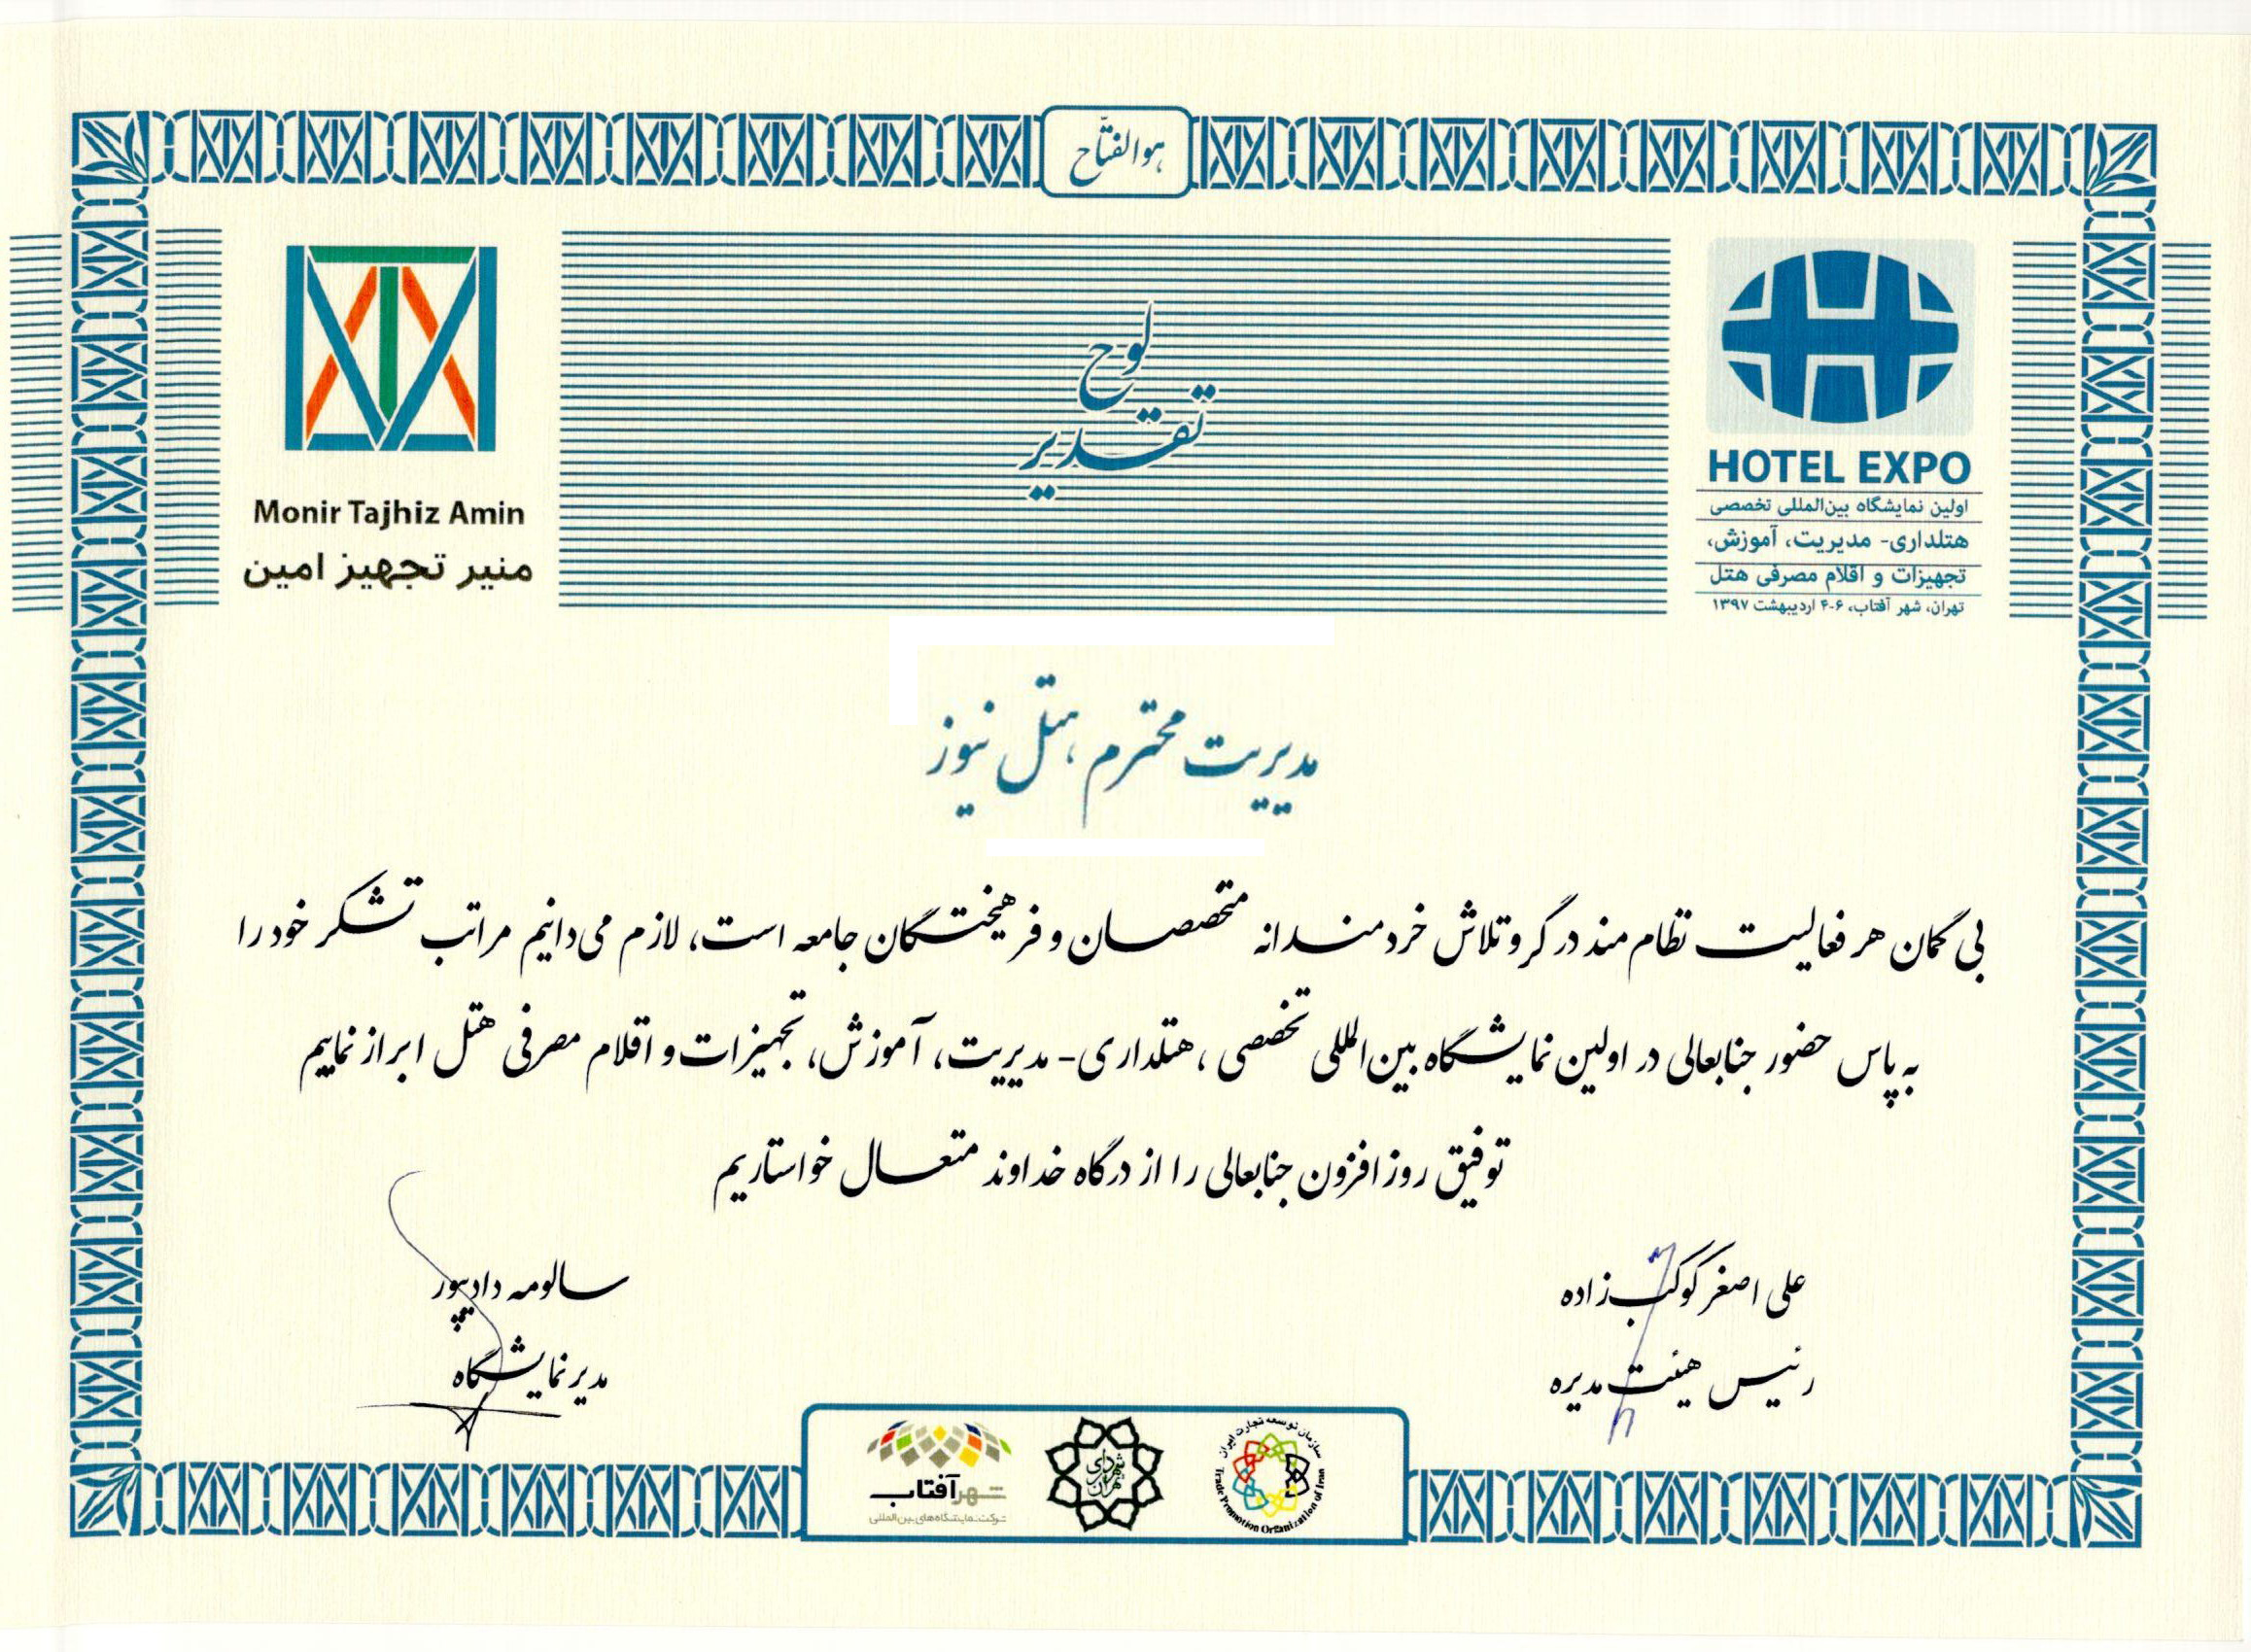 هوالفتّاح
لوح
تقدیر
HOTEL EXPO
اولین نمایشگاه بین‌المللی تخصصی
هتلداری- مدیریت، آموزش،
تجهیزات و اقلام مصرفی هتل
تهران، شهر آفتاب، ۶-۴ اردیبهشت ۱۳۹۷
Monir Tajhiz Amin
منیر تجهیز امین
مدیریت محترم هتل نیوز
بی گمان هر فعالیت نظام مند در گرو تلاش خردمندانه متخصصان و فرهیختگان جامعه است، لازم می‌دانیم مراتب تشکر خود را
به پاس حضور جنابعالی در اولین نمایشگاه بین‌المللی تخصصی هتلداری- مدیریت، آموزش، تجهیزات و اقلام مصرفی هتل ابراز نماییم
توفیق روز افزون جنابعالی را از درگاه خداوند متعال خواستاریم
علی اصغر کوکب‌زاده
رئیس هیئت مدیره
سالومه دادپور
مدیر نمایشگاه
سازمان توسعه تجارت ایران
Trade Promotion Organization of Iran
شهرداری تهران
شهر آفتاب
شرکت نمایشگاه‌های بین‌المللی